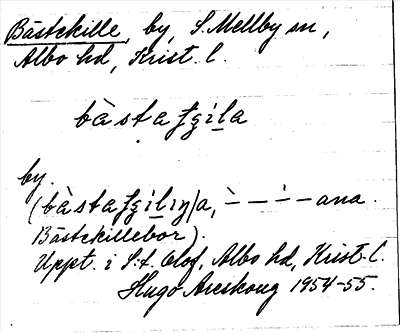 Bästekille, by, S. Mellby sn,
Albo hd, Krist. l.
bàstaʒgíla
by.
(bàstaʒgílıŋ/a, `— —´— —ana.
Bästekillebor).
Uppt. i S:t Olof, Albo hd, Krist. l.
Hugo Areskoug 1954-55.